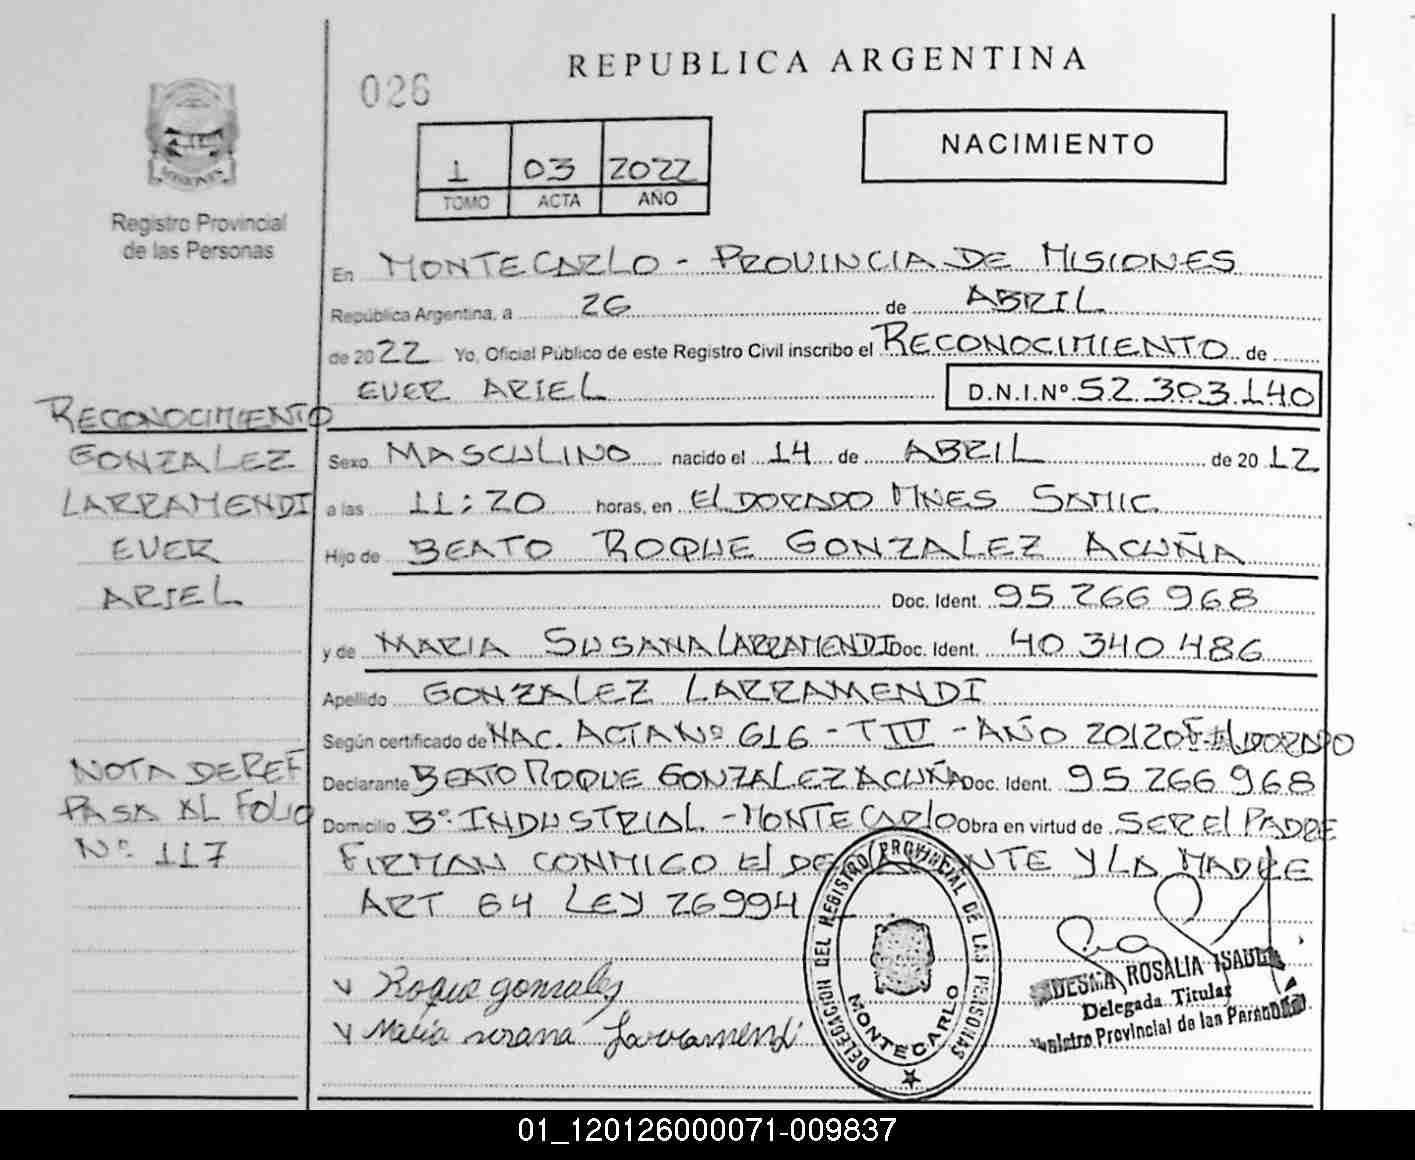 REPUBLICA ARGENTINA
026
NACIMIENTO
1 03 2022
TOMO ACTA AÑO
MISIONES
Registro Provincial
de las Personas
En MONTECARLO - PROVINCIA DE MISIONES
República Argentina, a 26 de ABRIL
de 2022 Yo, Oficial Público de este Registro Civil inscribo el RECONOCIMIENTO de
EVER ARIEL D.N.I.Nº 52.303.140
RECONOCIMIENTO
GONZALEZ
LARRAMENDI
EVER
ARIEL
Sexo MASCULINO nacido el 14 de ABRIL de 2012
a las 11:20 horas, en ELDORADO MNES SAMIC.
Hijo de BEATO ROQUE GONZALEZ ACUÑA
Doc. Ident. 95 266 968
y de MARIA SUSANA LARRAMENDI Doc. Ident. 40 340 486
Apellido GONZALEZ LARRAMENDI
Según certificado de NAC. ACTA Nº 616 - T III - AÑO 2012 ELDORADO
Declarante BEATO ROQUE GONZALEZ ACUÑA Doc. Ident. 95 266 968
Domicilio Bº INDUSTRIAL - MONTECARLO Obra en virtud de SER EL PADRE
FIRMAN CONMIGO EL DE NTE Y LA MADRE
ART 64 LEY 26994
NOTA DE REF
PASA AL FOLIO
Nº 117
Roque gonzales
Maria susana Larramendi
DELEGACION DEL REGISTRO PROVINCIAL DE LAS PERSONAS
MONTECARLO
ROSALIA ISABEL
Delegada Titular
Registro Provincial de las Personas
01_120126000071-009837